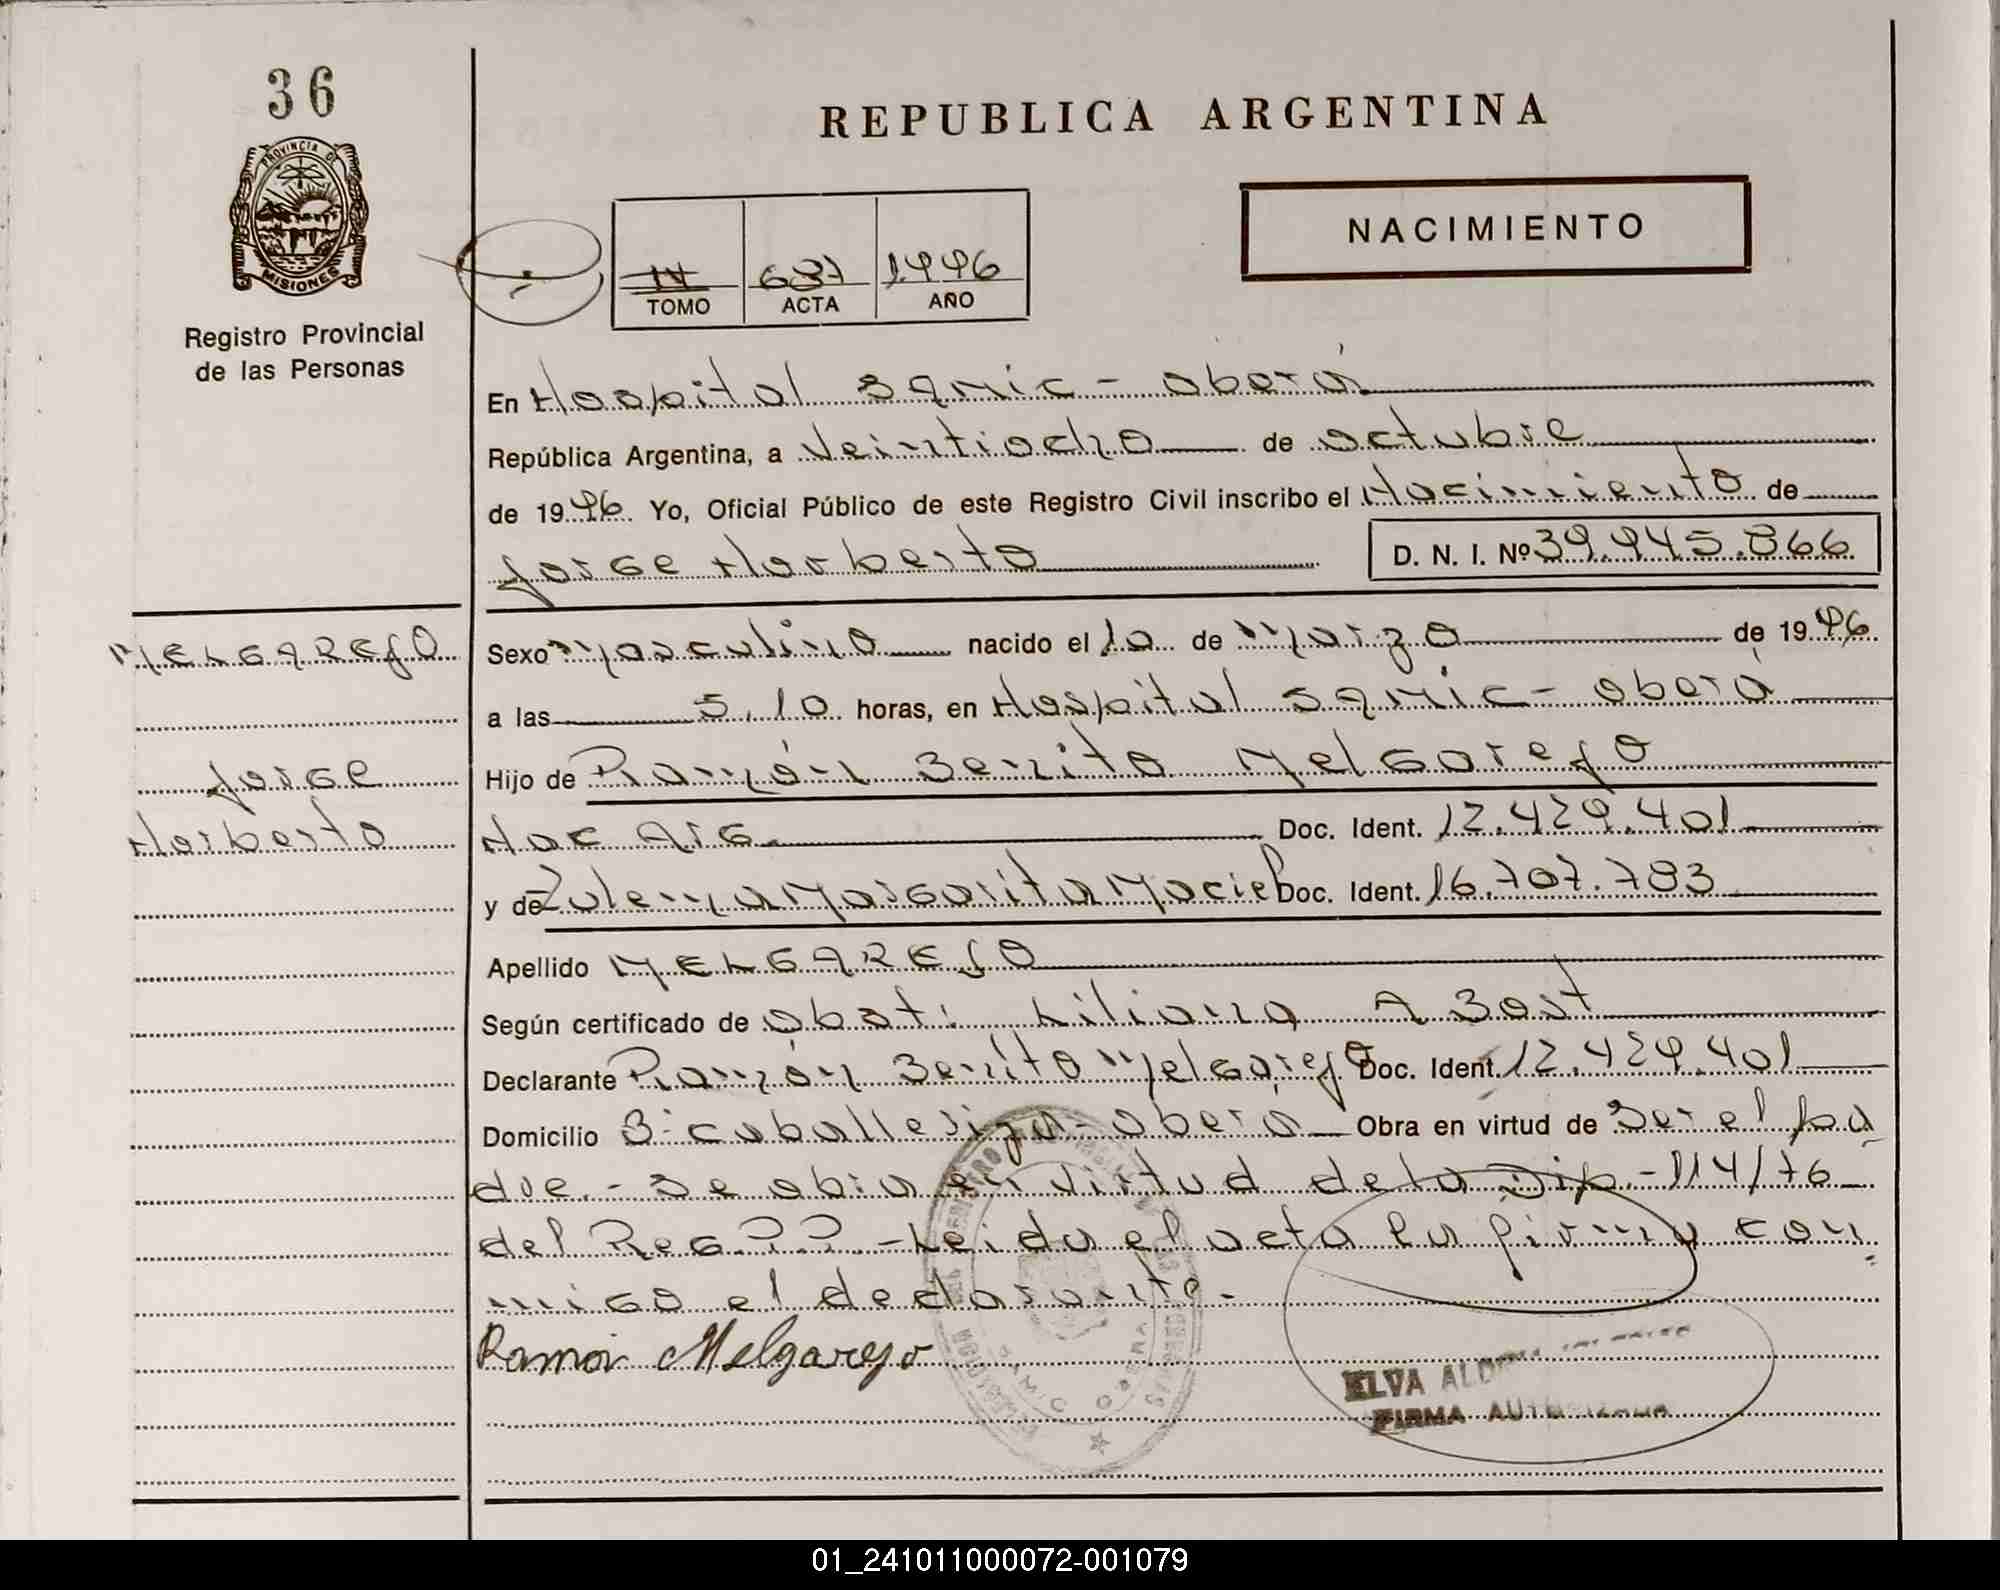 36
PROVINCIA DE
MISIONES
Registro Provincial
de las Personas
REPUBLICA ARGENTINA
NACIMIENTO
IV 687 1996
TOMO ACTA AÑO
En Hospital SAMIC - Oberá
República Argentina, a Veintiocho de octubre
de 1996 Yo, Oficial Público de este Registro Civil inscribo el Nacimiento de
Jorge Norberto D. N. I. Nº 39.945.866
MELGAREJO
Jorge
Norberto
Sexo Masculino nacido el 10 de Marzo de 1996
a las 5.10 horas, en Hospital SAMIC - Oberá
Hijo de Ramón Benito Melgarejo
Nac Arg. Doc. Ident. 12.429.401
y de Zulema Margarita Maciel Doc. Ident. 16.707.783
Apellido MELGAREJO
Según certificado de Obst: Liliana A Bast
Declarante Ramón Benito Melgarejo Doc. Ident. 12.429.401
Domicilio Bº Caballeriza - Oberá Obra en virtud de Ser el pa
dre.- Se obra en virtud de la Dip - 114/76
del Reg. P.P. - Leida el acta la firma con
migo el declarante.-
Ramón Melgarejo
SAMIC OBERA
ELVA
FIRMA AUTORIZADA
01_241011000072-001079